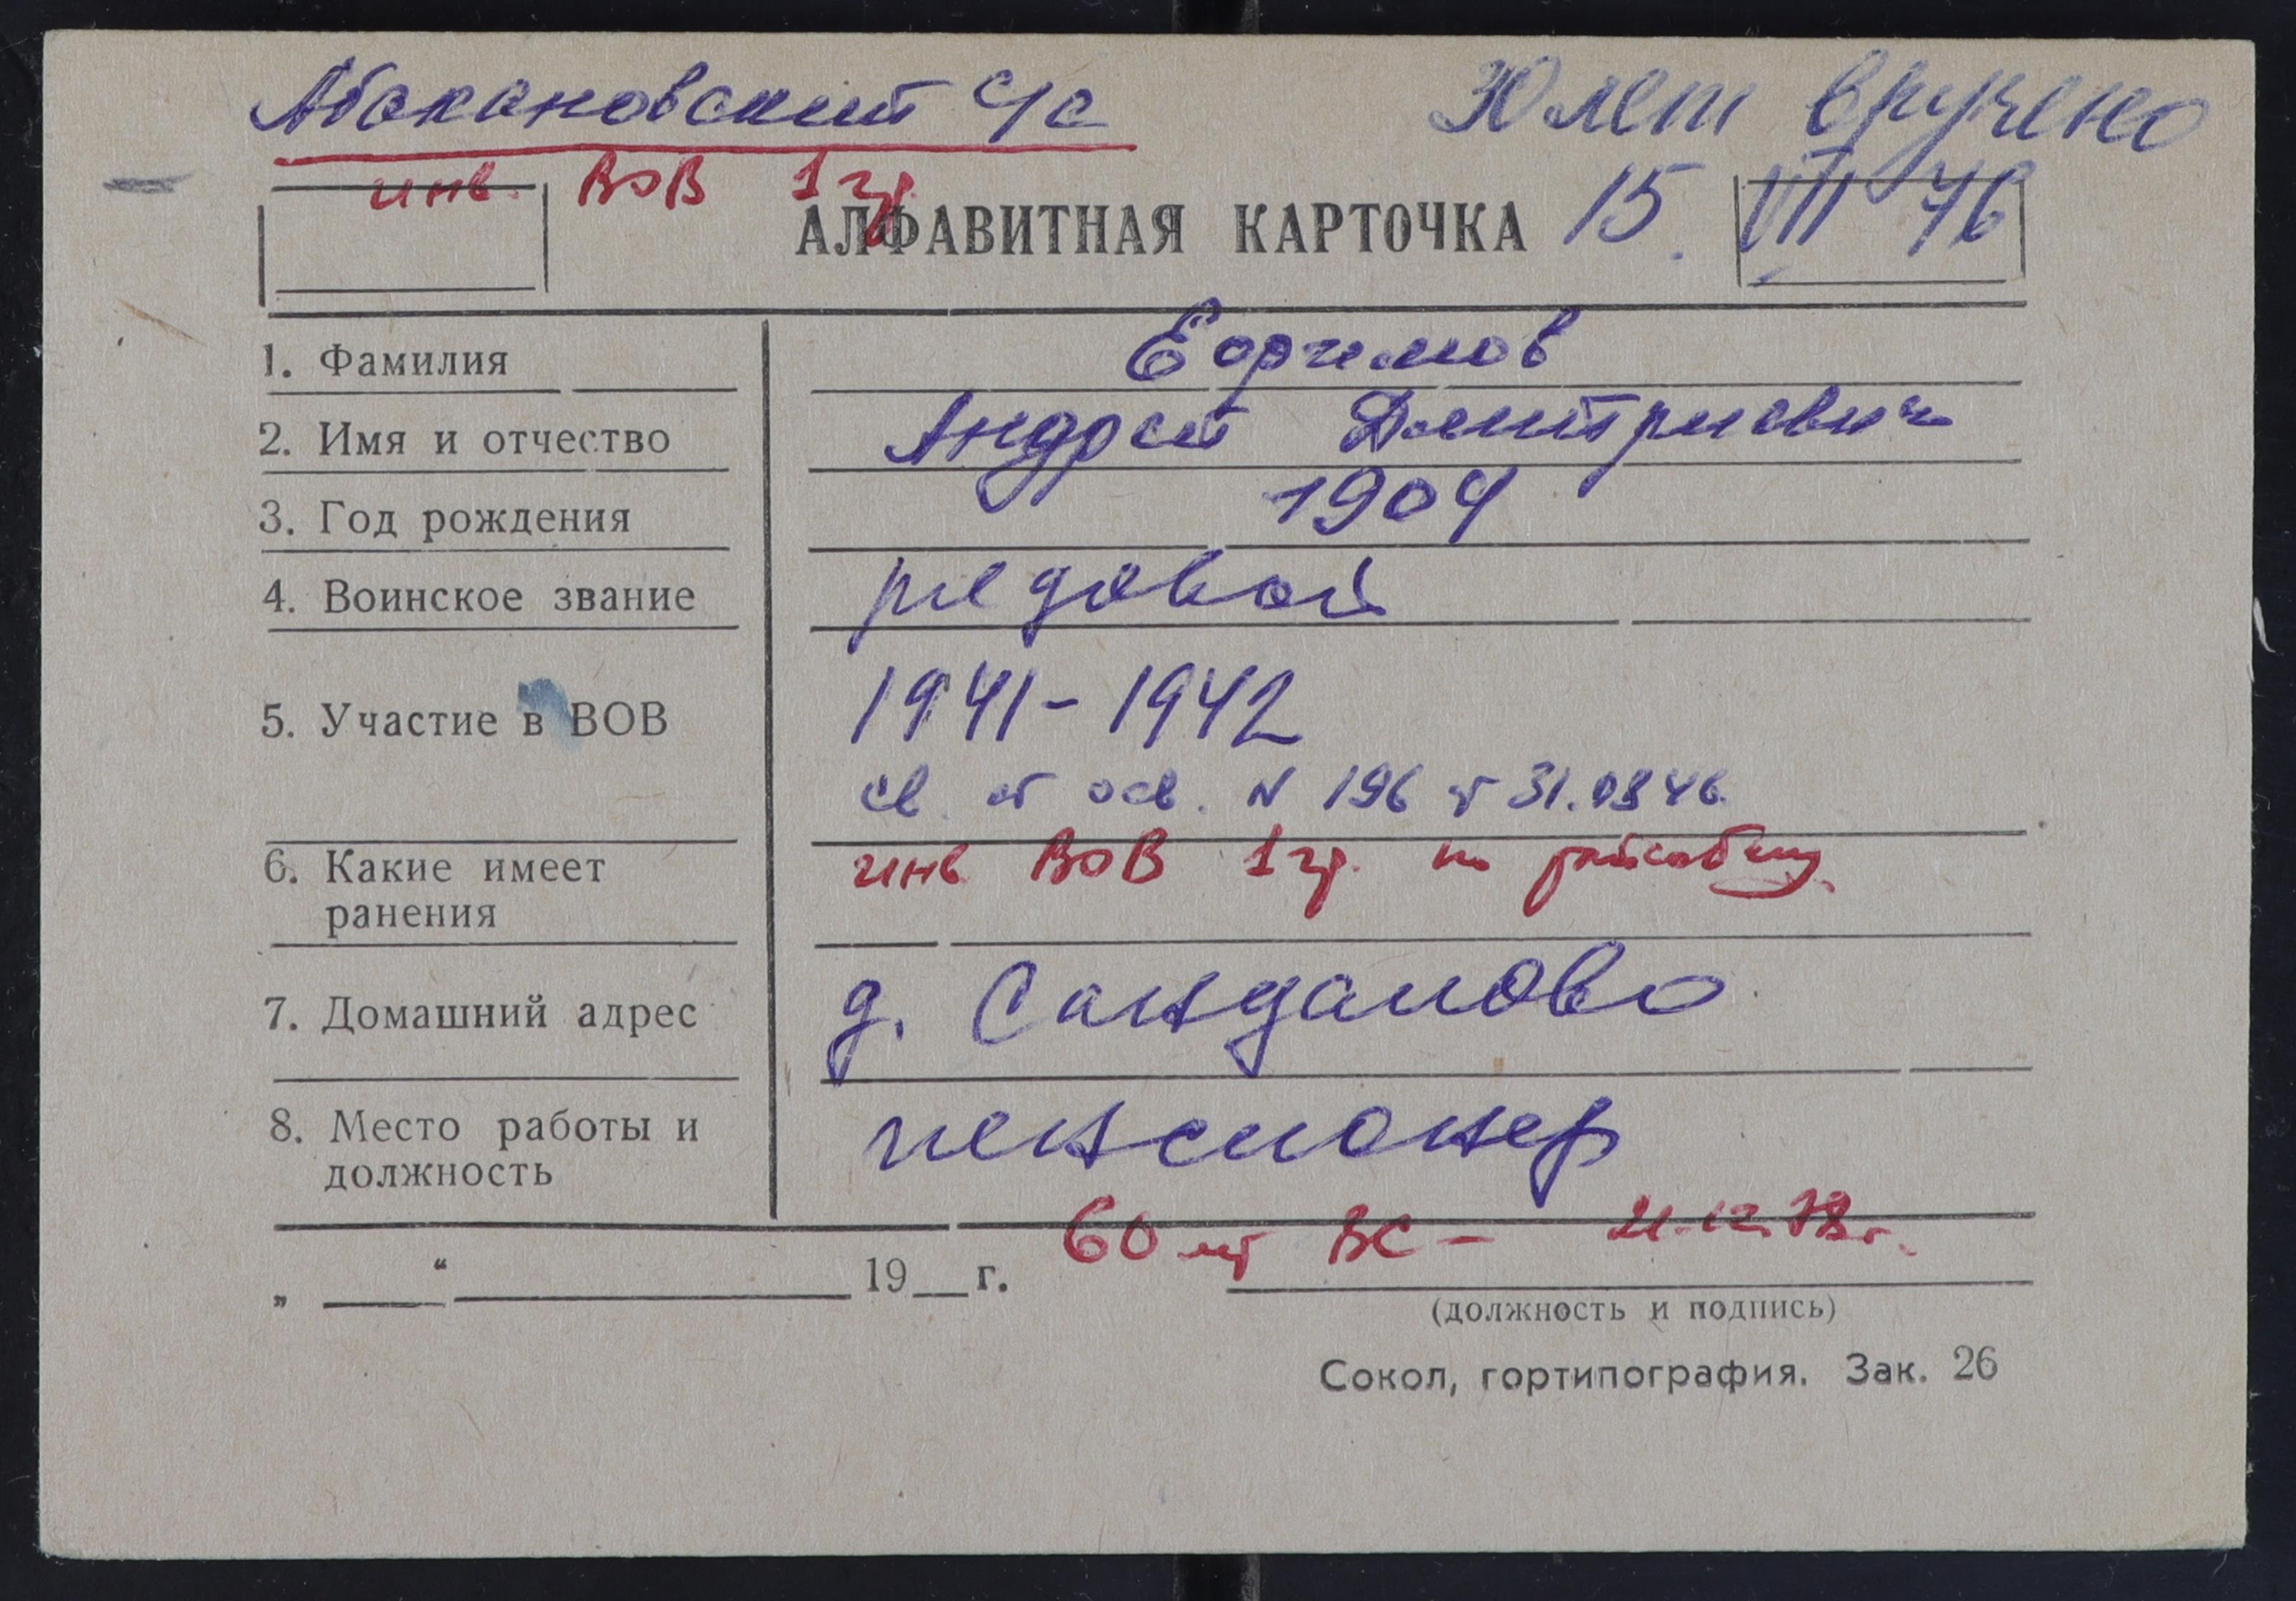 Абакановский с/с
30 лет вручено
15. VII 76
инв. ВОВ 1 гр.
АЛФАВИТНАЯ КАРТОЧКА
1. Фамилия Ефимов
2. Имя и отчество Андрей Дмитриевич
3. Год рождения 1904
4. Воинское звание рядовой
5. Участие в ВОВ 1941-1942
св. от осв. N 196 от 31.08 46.
6. Какие имеет
ранения
инв. ВОВ 1 гр. по райсобесу
7. Домашний адрес д. Сандалово
8. Место работы и
должность
пенсионер
60 лет ВС - 21.12.78 г.
„ ___ “ ___ 19__г.
(должность и подпись)
Сокол, гортипография. Зак. 26